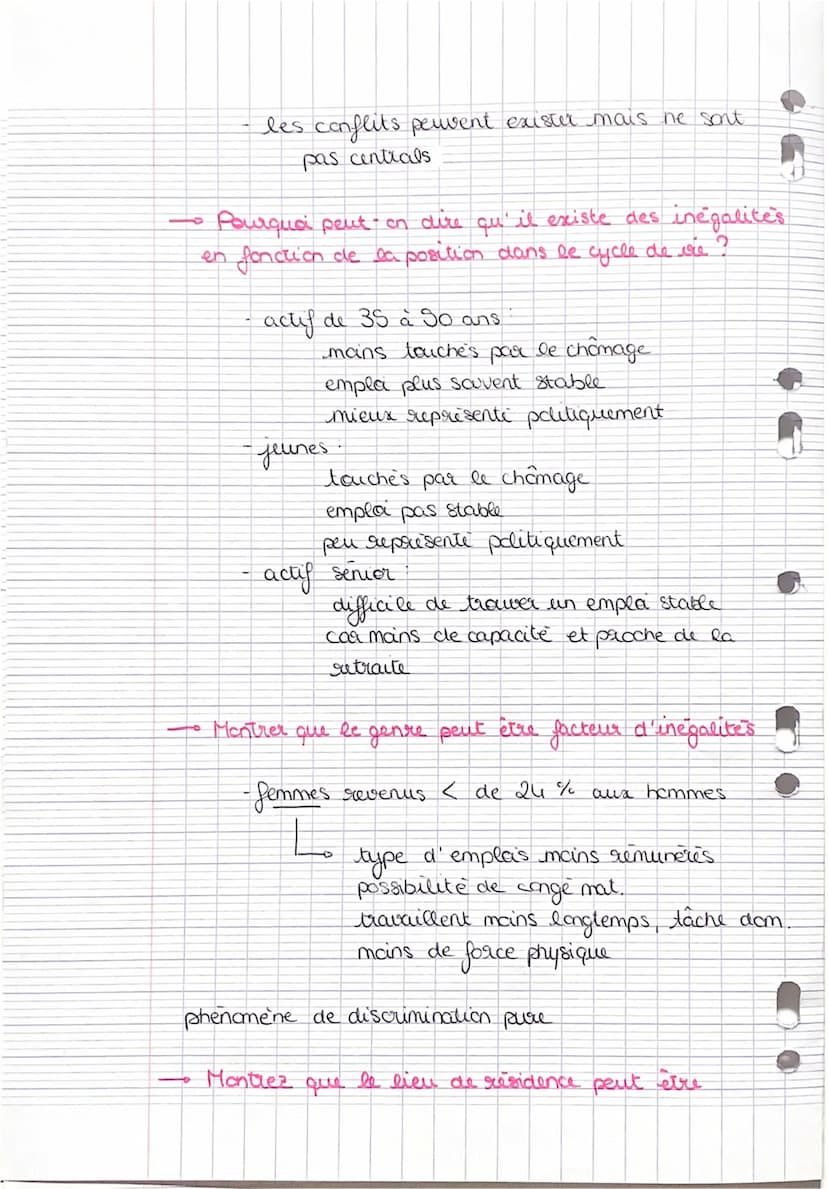 - les conflits peuvent exister mais ne sont
pas centrals
→ Pourquoi peut-on dire qu'il existe des inégalités
en fonction de la position dans le cycle de vie ?
- actif de 35 à 50 ans :
moins touchés par le chômage
emploi plus souvent stable
mieux représenté politiquement
- jeunes :
touchés par le chômage
emploi pas stable
peu représenté politiquement
- actif sénior :
difficile de trouver un emploi stable
car moins de capacité et proche de la
retraite
→ Montrer que le genre peut être facteur d'inégalités
- femmes revenus < de 24 % aux hommes
↳ type d'emplois moins rémunérés
possibilité de congé mat.
travaillent moins longtemps, tâche dom.
moins de force physique
phénomène de discrimination pure
→ Montrez que le lieu de résidence peut être